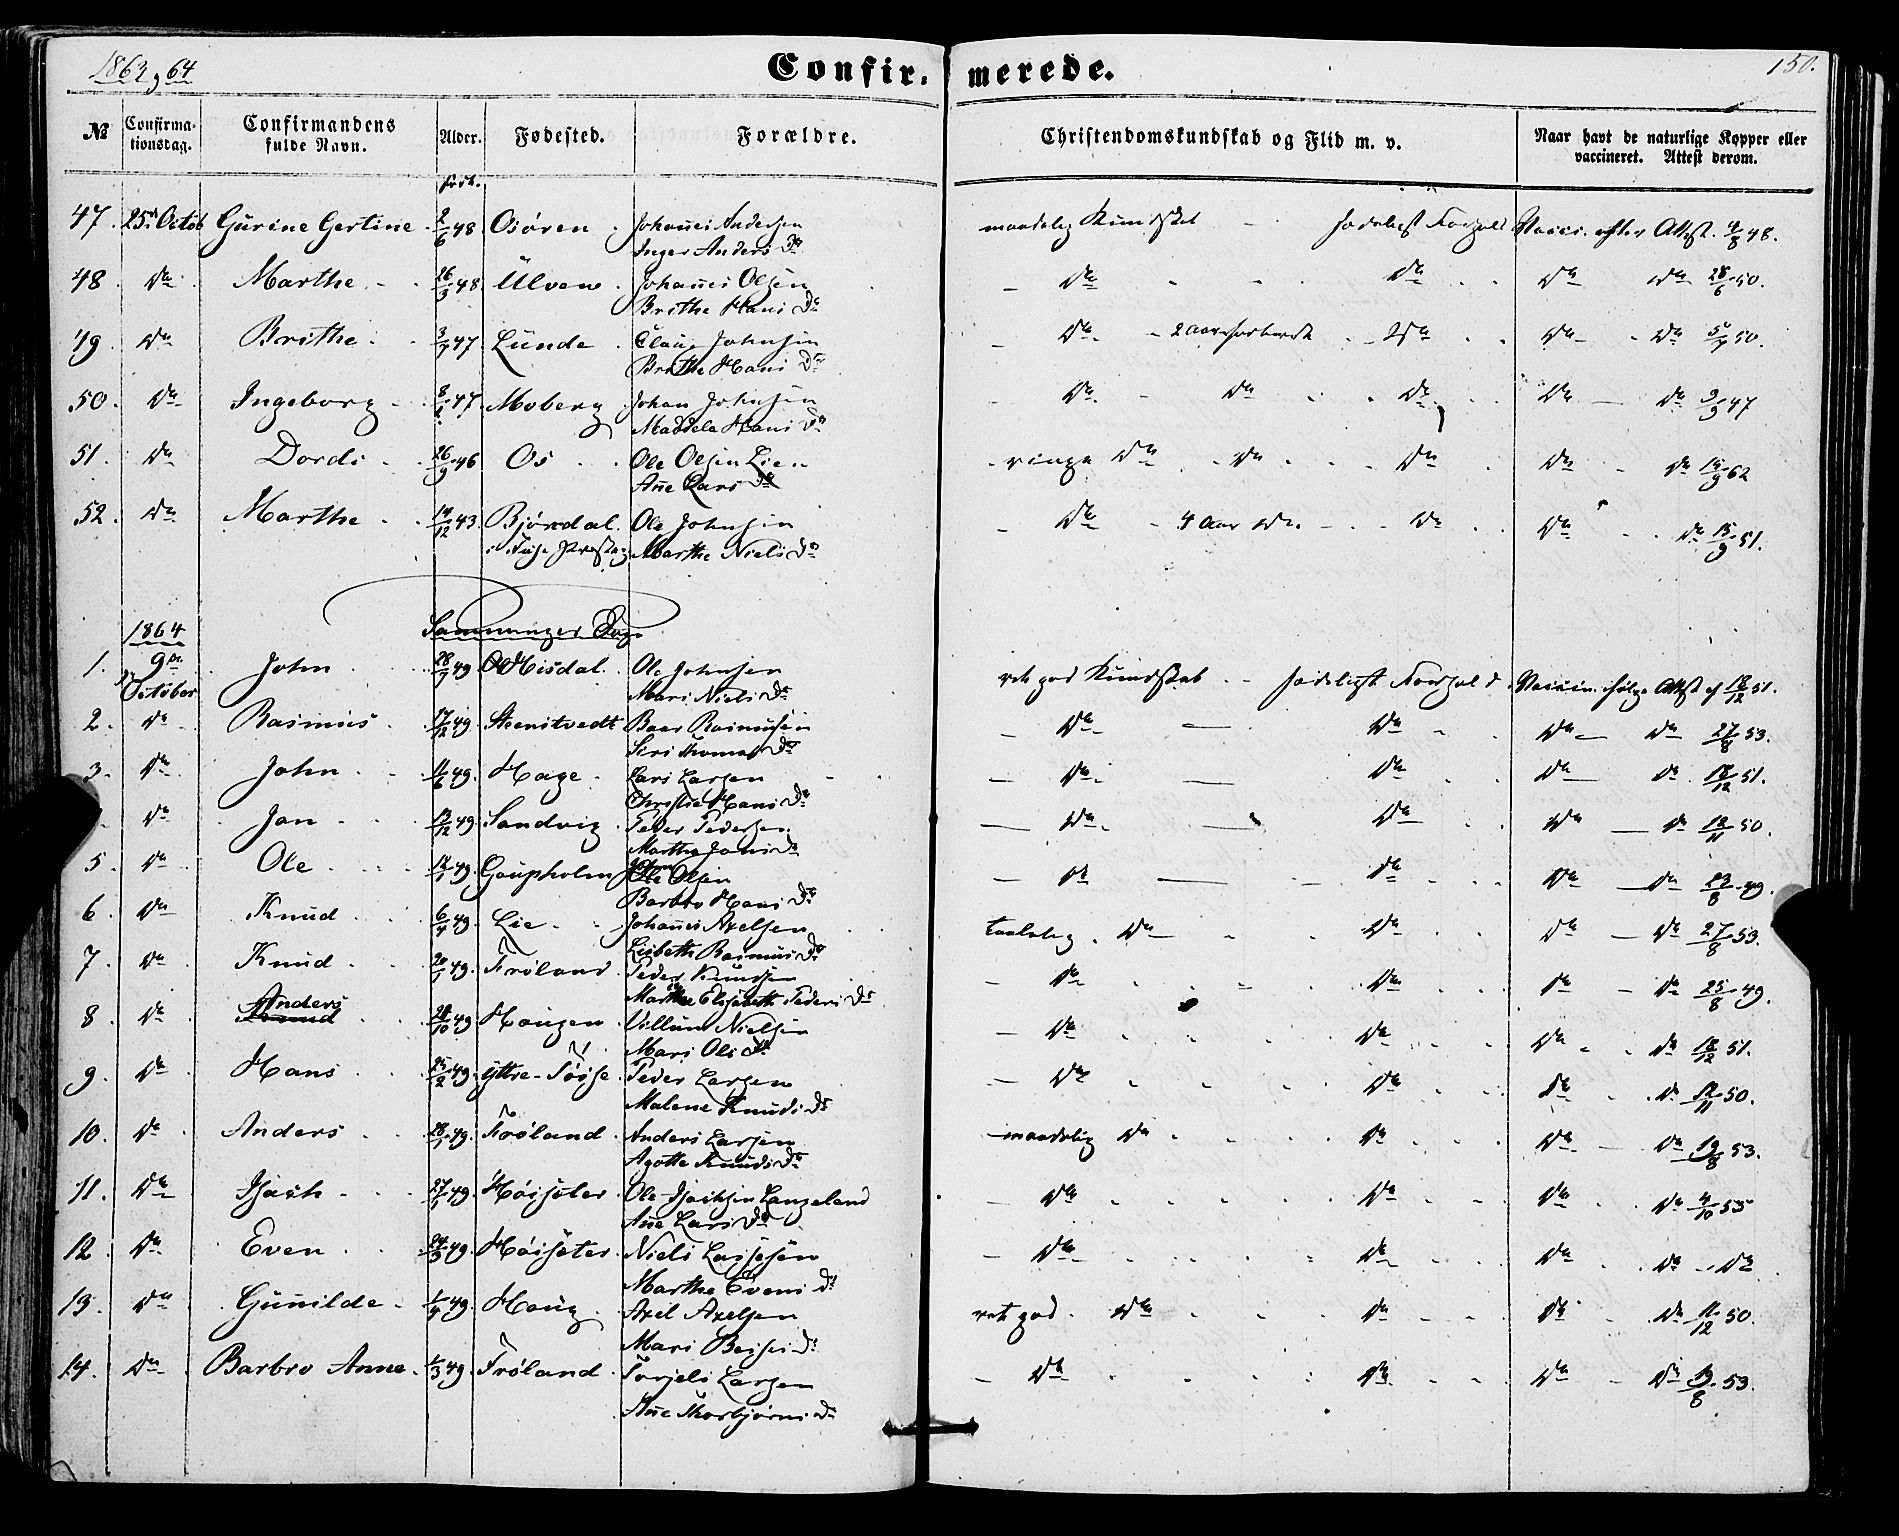 1863 og 64
Confir- merede.
150.
№
Confirma-
tionsdag.
Confirmandens
fulde Navn.
Alder.
Fødested.
Forældre.
Christendomskundskab og Flid m. v.
Naar havt de naturlige Kopper eller
vaccineret. Attest derom.
født.
47. 25de Octob Gurine Gertine 2/6 48 Osören Johannes Andersen maadelig Kundskab - sædeligt Forhold Vaccin. efter Attest 4/8 48.
Inger Anders Dr
48. Do Marthe 26/3 48 Ulven Johannes Olsen Do Do Do Do 28/6 50.
Brithe Hans Dr
49 Do Brithe 3/7 47 Lunde Claus Johnsen Do - 2 Aar forberedt - Do Do Do 5/7 50.
Brithe Hans Dr
50. Do Ingeborg 47 Moberg Johan Johnsen Do Do Do Do Do 9/9 47
Madsela Hans Dr
51. Do Dordi 26/9 46 Os Ole Olsen Lien ringe Do Do Do Do Do 62
Ane Lars Dr
52. Do Marthe 14/12 43 Bjørndal Ole Johnsen Do - 4 Aar Do Do Do Do 15/9 51.
i Fuse Præsteg Marthe Niels Dr
1864
Samnanger Sogn
1. 9de John 28/7 49 Misdal Ole Johnsen ret god Kundskab - sædeligt Forhold Vaccin. ifølge Attest af 18/12 51.
October Mari Niels Dr
2. Do Rasmus 17/12 49 Steensvedt Baar Rasmussen Do Do Do Do 27/8 53.
Siri Thomas Dr
3. Do John 11/6 49 Hage Lars Larsen Do Do Do Do 18/12 51.
Christie Hans Dr
Do Jan 13/12 49 Sandvig Peder Pedersen Do Do Do Do 12/11 50.
Marthe Jans Dr
5. Do Ole 12/1 49 Gaupholm Ole Olsen Do Do Do Do 23/8 49.
Barbro Hans Dr
6 Do Knud 6/4 49 Lie Johannes Axelsen taalelig Do Do Do Do 27/8 53.
Lisbeth Rasmus Dr
7 Do Knud 20/1 49 Frøland Peder Knudsen Do Do Do Do 25/8 49.
Marthe Elisabeth Peders Dr
Anders
8 Do Knud 28/10 49 Haugen Villum Nielsen Do Do Do Do 18/12 51.
Mari Ols Dr
9 Do Hans 25/2 49 Yttre-Tøsse Peder Larsen Do Do Do Do 12/11 50.
Malene Knuds Dr
10. Do Anders 28/7 49 Frøland Anders Larsen maadelig Do Do Do Do 19/8 53.
Agatte Knuds Dr
11. Do Isach 27/1 49 Høisæter Ole Isachsen Langeland Do Do Do Do 4/10 55
Ane Lars Dr
12. Do Even 24/3 49 Høisæter Niels Lassesen Do Do Do Do Do
Marthe Evens Dr
13. Do Gunilde 1/4 49 Haug Axel Axelsen ret god Do Do Do Do 11/12 50.
Mari Beises Dr
14. Do Barbro Anne 1/3 49 Frøland Torjels Larsen Do Do Do Do 19/8 53.
Ane Thorbjørns Dr